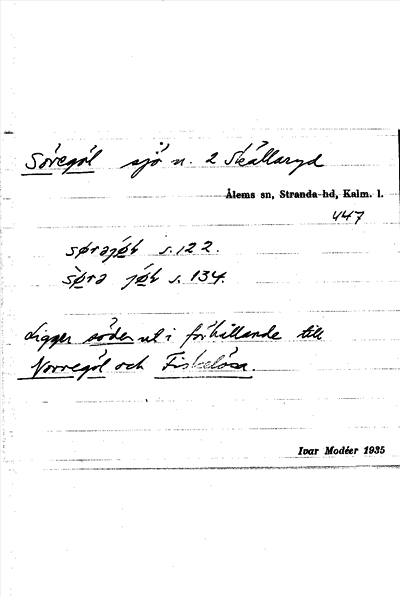 Söregöl sjö n. 2 Skällaryd
Ålems sn, Stranda hd, Kalm. l.
447
sørəjø̀l s. 122.
sø̀rə jøl s. 134.
Ligger söderut i förhållande till
Norregöl och Fiskelösa.
Ivar Modéer 1935